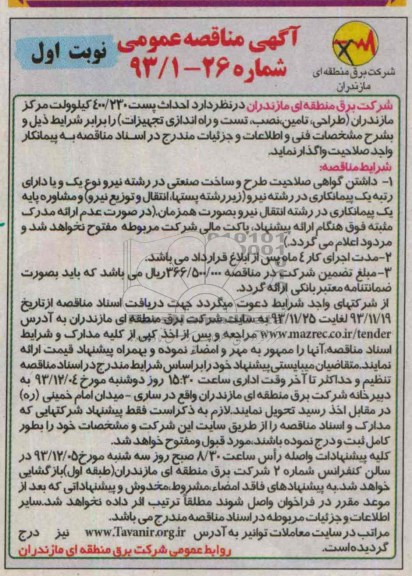 آگهی مناقصه عمومی
شماره ۲۶-۹۳/۱
نوبت اول
شرکت برق منطقه ای
مازندران
شرکت برق منطقه ای مازندران درنظر دارد احداث پست ۴۰۰/۲۳۰ کیلوولت مرکز
مازندران (طراحی، تامین، نصب، تست و راه اندازی تجهیزات) را برابر شرایط ذیل و
بشرح مشخصات فنی و اطلاعات و جزئیات مندرج در اسناد مناقصه به پیمانکار
واجد صلاحیت واگذار نماید.
شرایط مناقصه:
۱- داشتن گواهی صلاحیت طرح و ساخت صنعتی در رشته نیرو نوع یک و یا دارای
رتبه یک پیمانکاری در رشته نیرو (زیر رشته پستها، انتقال و توزیع نیرو) و مشاوره پایه
یک پیمانکاری در رشته انتقال نیرو بصورت همزمان.(در صورت عدم ارائه مدرک
مثبته فوق هنگام ارائه پیشنهاد، پاکت مالی شرکت مربوطه مفتوح نخواهد شد و
مردود اعلام می گردد.)
۲-مدت اجرای کار ۴ ماه پس از ابلاغ قرارداد می باشد.
۳- مبلغ تضمین شرکت در مناقصه ۳۶۶/۵۰۰/۰۰۰ریال می باشد که باید بصورت
ضمانتنامه معتبر بانکی ارائه گردد.
از شرکتهای واجد شرایط دعوت میگردد جهت دریافت اسناد مناقصه از تاریخ
۹۳/۱۱/۱۹ لغایت ۹۳/۱۱/۲۵ به سایت شرکت برق منطقه ای مازندران به آدرس
www.mazrec.co.ir/tender مراجعه و پس از اخذ کپی از کلیه مدارک و شرایط
اسناد مناقصه،آنها را ممهور به مهر و امضاء نموده و بهمراه پیشنهاد قیمت ارائه
نمایند.متقاضیان میبایستی پیشنهاد خود را بر اساس شرایط مندرج در اسناد مناقصه
تنظیم و حداکثر تا آخر وقت اداری ساعت ۱۵:۳۰ روز دوشنبه مورخ ۹۳/۱۲/۰۴ به
دبیرخانه شرکت برق منطقه ای مازندران واقع در ساری - میدان امام خمینی (ره)
در مقابل اخذ رسید تحویل نمایند.لازم به ذکر است فقط پیشنهاد شرکتهایی که
مدارک و اسناد مناقصه را از طریق سایت این شرکت و مشخصات خود را بطور
کامل ثبت و درج نموده باشند،مورد قبول و مفتوح خواهد شد.
کلیه پیشنهادات واصله رأس ساعت ۸/۳۰ صبح روز سه شنبه مورخ ۹۳/۱۲/۰۵ در
سالن کنفرانس شماره ۲ شرکت برق منطقه ای مازندران(طبقه اول)بازگشایی
خواهد شد.به پیشنهادهای فاقد امضاء،مشروط،مخدوش و پیشنهاداتی که بعد از
موعد مقرر در فراخوان واصل شوند مطلقاً ترتیب اثر داده نخواهد شد.سایر
اطلاعات و جزئیات مربوطه در اسناد مناقصه مندرج می باشد.
مراتب در سایت معاملات توانیر به آدرس www.Tavanir.org.ir نیز درج
گردیده است.
روابط عمومی شرکت برق منطقه ای مازندران